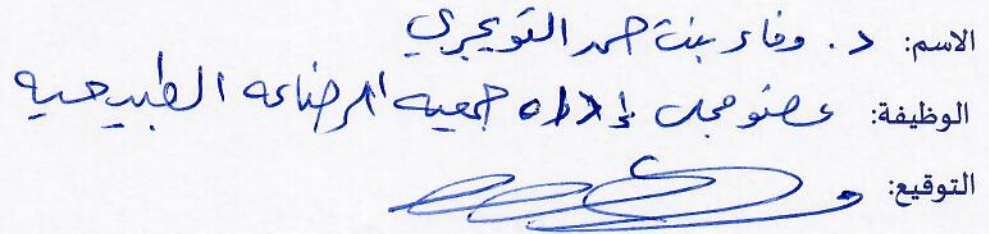 الاسم: د. وفاء بنت حمد التويجري
الوظيفة: عضو مجلس إدارة جمعية الرضاعه الطبيعيه
التوقيع: